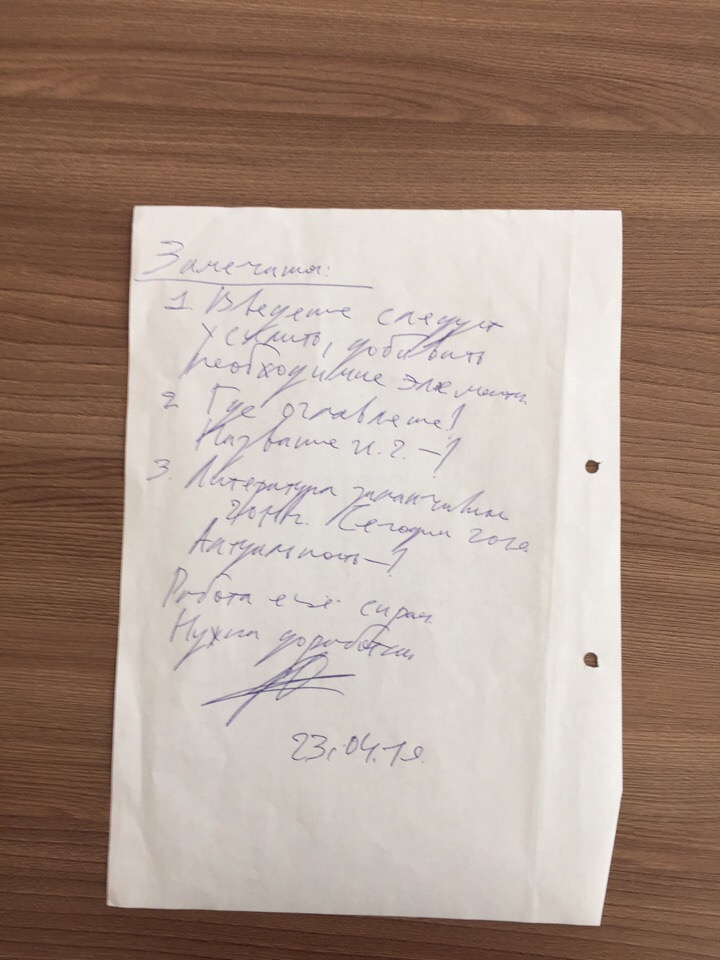 Замечания:
1. Введение следует
усилить, добавить
необходимые элементы.
2. Где оглавление!
Название и. г. –!
3. Литература заканчив
Сегодня
Актуальность –!
Работа ещё сырая.
Нужна доработка.
23.04.19.